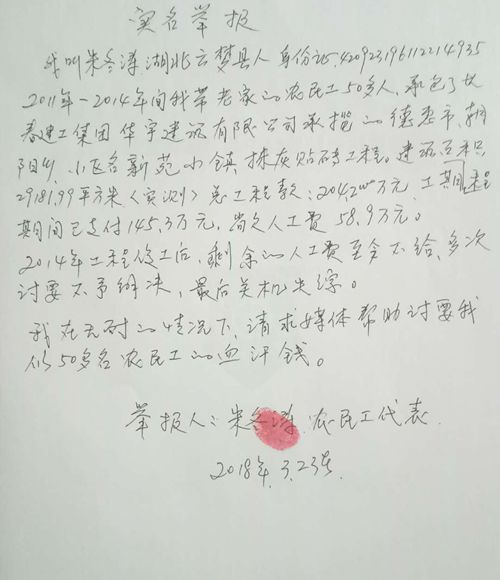 实名举报
我叫朱冬涛湖北云梦县人身份证:420923196112214935
2011年-2014年间我带老家的农民工50多人,承包了长
春建工集团华宇建筑有限公司承揽的德惠市、朝
阳乡、小区名新苑小镇抹灰贴砖工程。建筑面积
29181.99平方米(实测)总工程款:204.2万元,工期工程
期间已支付145.3万元,尚欠人工费58.9万元。
2014年工程修工后,剩余的人工费至今不给,多次
讨要不予解决,最后关机失综。
我在无耐的情况下,请求媒体帮助讨要我
们50多名农民工的血汗钱。
举报人:朱冬涛.农民工代表.
2018年.3.23